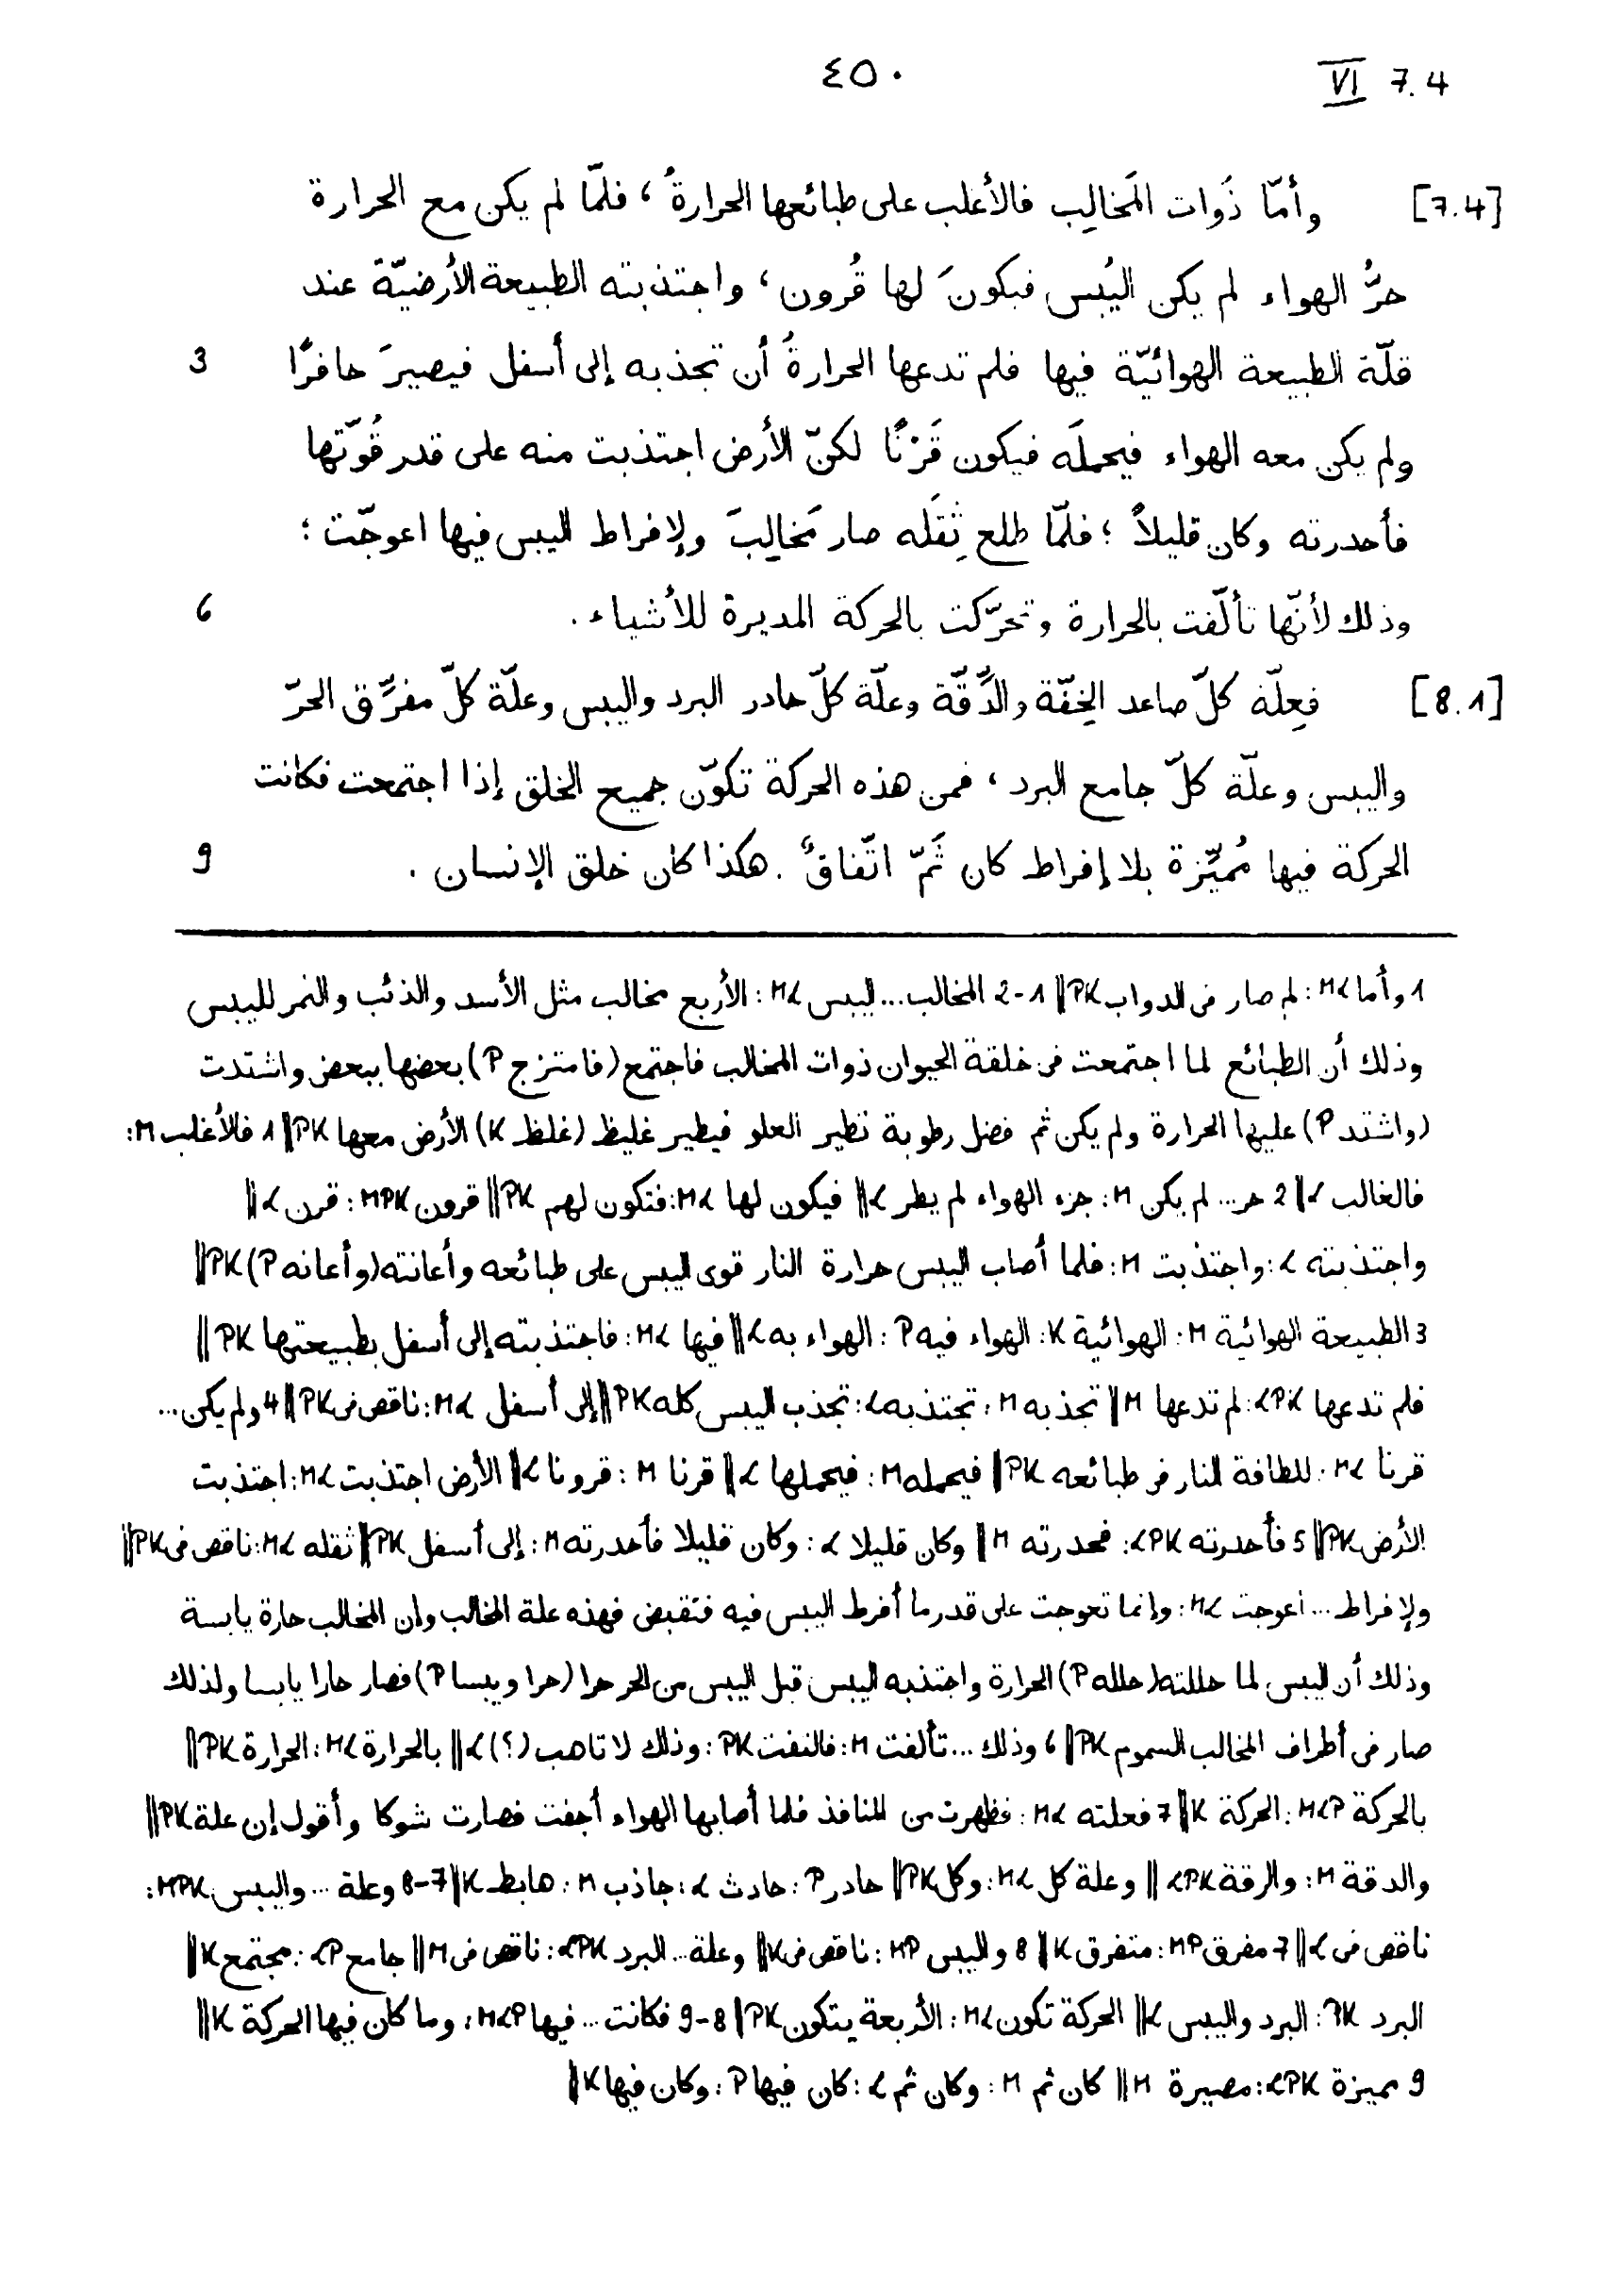 ٤٥٠ VI 7.4
[7.4] وأمّا ذَوات المَخالِب فالأغلب على طبائعها الحرارةُ، فلمّا لم يكن مع الحرارة
حرُّ الهواء لم يكن اليُبس فيكونَ لها قُرون، واجتذبته الطبيعة الأرضيّة عند
قلّة الطبيعة الهوائيّة فيها فلم تدعها الحرارةُ أن تجذبه إلى أسفل فيصيرَ حافرًا 3
ولم يكن معه الهواء فيحملَه فيكون قَرْنًا لكنّ الأرض اجتذبت منه على قدر قُوّتها
فأحدرته وكان قليلاً؛ فلمّا طلع ثِقَله صار مَخالِبَ ولإفراط اليبس فيها اعوجّت؛
وذلك لأنّها تألّفت بالحرارة وتحرّكت بالحركة المديرة للأشياء. 6
[8.1] فعِلّة كلّ صاعد الخِفّة والدِّقّة وعلّة كلّ حادر البرد واليبس وعلّة كلّ مفرِّق الحرّ
واليبس وعلّة كلّ جامع البرد، فمن هذه الحركة تكوّن جميع الخلق إذا اجتمعت فكانت
الحركة فيها مُميِّزة بلا إفراط كان ثَمّ اتّفاقٌ. هكذا كان خلق الإنسان. 9
1 وأما ML: لم صار فى الدواب PK || 1-2 المخالب...اليبس ML: الأربع مخالب مثل الأسد والذئب والنمر لليبس
وذلك أن الطبائع لما اجتمعت فى خلقة الحيوان ذوات المخالب فاجتمع (فامتزج P) بعضها ببعض واشتدت
(واشتد P) عليها الحرارة ولم يكن ثم فضل رطوبة تطير العلو فيطير غليظ (غلظ K) الأرض معها PK || 1 فالأغلب M:
فالغالب L || 2 حر... لم يكن M: جزء الهواء لم يطر L || فيكون لها ML: فتكون لهم PK || قرون MPK: قرن L ||
واجتذبته L: واجتذبت M: فلما أصاب اليبس حرارة النار قوى اليبس على طبائعه وأعانته (وأعانه P) PK ||
3 الطبيعة الهوائية M: الهوائية K: الهواء فيه P: الهواء به L || فيها ML: فاجتذبته إلى أسفل بطبيعتها PK ||
فلم تدعها LPK: لم تدعها M || تجذبه M: تجتذبه L: تجذب اليبس كله PK || إلى أسفل ML: ناقص فى PK || 4 ولم يكن...
قرنا ML: للطافة النار فى طبائعه PK || فيحمله M: فيحملها L || قرنا M: قرونا L || الأرض اجتذبت ML: اجتذبت
الأرض PK || 5 فأحدرته LPK: فحدرته M || وكان قليلا L: وكان قليلا فأحدرته M: إلى أسفل PK || ثقله ML: ناقص فى PK ||
ولإفراط... اعوجت ML: وإنما تعوجت على قدر ما أفرط اليبس فيه فتقبض فهذه علة المخالب وإن المخالب حارة يابسة
وذلك أن اليبس لما حللته (حلله P) الحرارة واجتذبه اليبس قبل اليبس من الحر حرا (حرا ويبسا P) فصار حارا يابسا ولذلك
صار فى أطراف المخالب السموم PK || 6 وذلك... تألفت M: فالتفت PK: وذلك لا تاهب (؟) L || بالحرارة ML: الحرارة PK ||
بالحركة MLP: الحركة K || 7 فعلته ML: فظهرت من المنافذ فلما أصابها الهواء أجفت فصارت شوكا وأقول إن علة PK ||
والدقة M: والرقة LPK || وعلة كل ML: وكل PK || حادر P: حادث L: جاذب M: هابط K || 7-8 وعلة... واليبس MPK:
ناقص فى L || 7 مفرق MP: متفرق K || 8 واليبس MP: ناقص فى K || وعلة... البرد LPK: ناقص فى M || جامع LP: مجتمع K ||
البرد PK: البرد واليبس L || الحركة تكون ML: الأربعة يتكون PK || 8-9 فكانت... فيها MLP: وما كان فيها الحركة K ||
9 مميزة LPK: مصيرة M || كان ثم M: وكان ثم L: كان فيها P: وكان فيها K ||